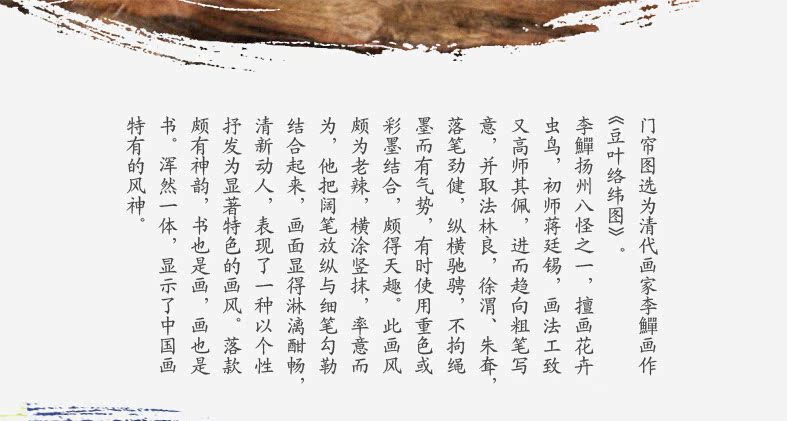 门帘图选为清代画家李鱓画作
《豆叶络纬图》。
李鱓扬州八怪之一，擅画花卉
虫鸟，初师蒋廷锡，画法工致
又高师其佩，进而趋向粗笔写
意，并取法林良，徐渭、朱耷，
落笔劲健，纵横驰骋，不拘绳
墨而有气势，有时使用重色或
彩墨结合，颇得天趣。此画风
颇为老辣，横涂竖抹，率意而
为，他把阔笔放纵与细笔勾勒
结合起来，画面显得淋漓酣畅，
清新动人，表现了一种以个性
抒发为显著特色的画风。落款
颇有神韵，书也是画，画也是
书。浑然一体，显示了中国画
特有的风神。